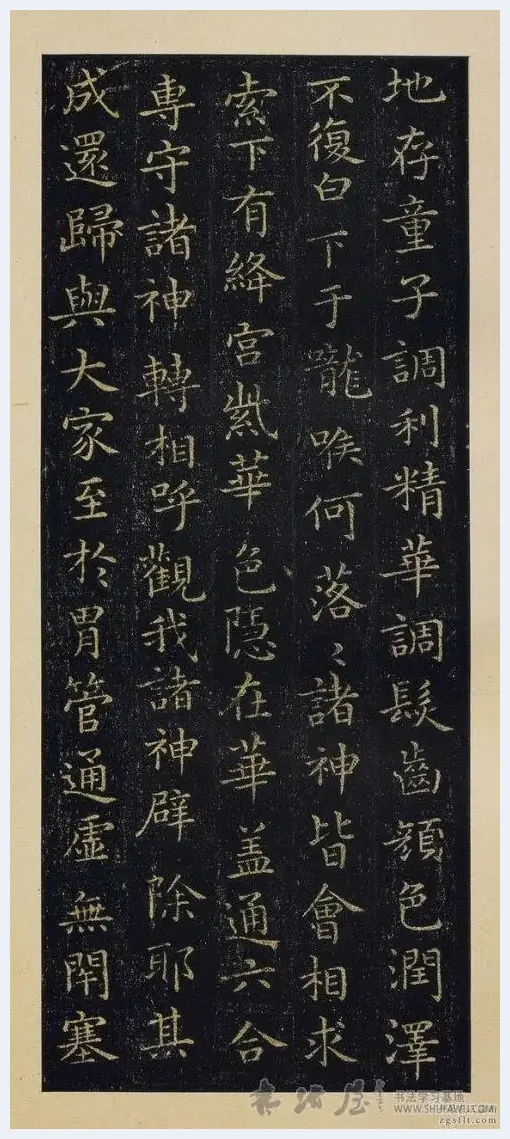 地存童子調利精華調髮齒顏色潤澤
不復白下于嚨喉何落〻諸神皆會相求
索下有絳宮紫華色隱在華盖通六合
專守諸神轉相呼觀我諸神辟除耶其
成還歸與大家至於胃管通虛無閇塞
书法学习基地
WWW.SHUFAWU.COM
zgsflt.com